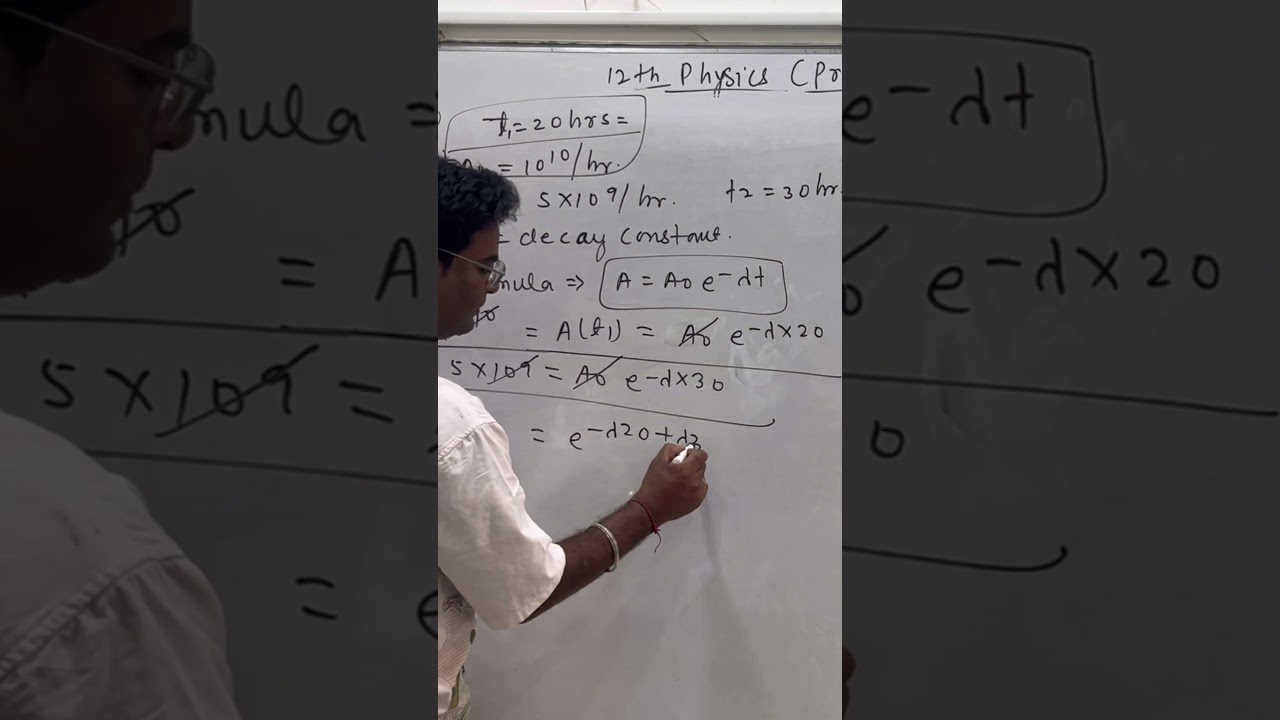 12th Physics (Pr
t₁ = 20 hrs =
= 10¹⁰/hr.
5 × 10⁹/hr. t2 = 30 hr
= decay constant.
mula ⇒ A = A₀ e⁻ᵈᵗ
= A(t₁) = A₀ e^-λ×20
5 × 10⁹ = A₀ e^-λ×30
= e^-λ20+λ3